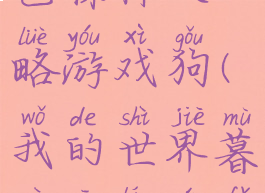 lüè yóu xì gǒu
略游戏狗(
wǒ de shì jiè mù
我的世界暮